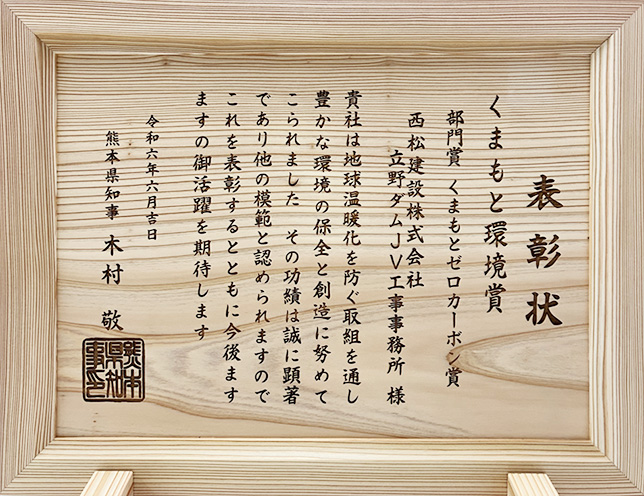 表彰状
くまもと環境賞
部門賞 くまもとゼロカーボン賞
西松建設株式会社
立野ダムJV工事事務所 様
貴社は地球温暖化を防ぐ取組を通し
豊かな環境の保全と創造に努めて
こられました その功績は誠に顕著
であり他の模範と認められますので
これを表彰するとともに今後ます
ますの御活躍を期待します
令和六年六月吉日
熊本県知事 木村 敬
熊本県知事之印